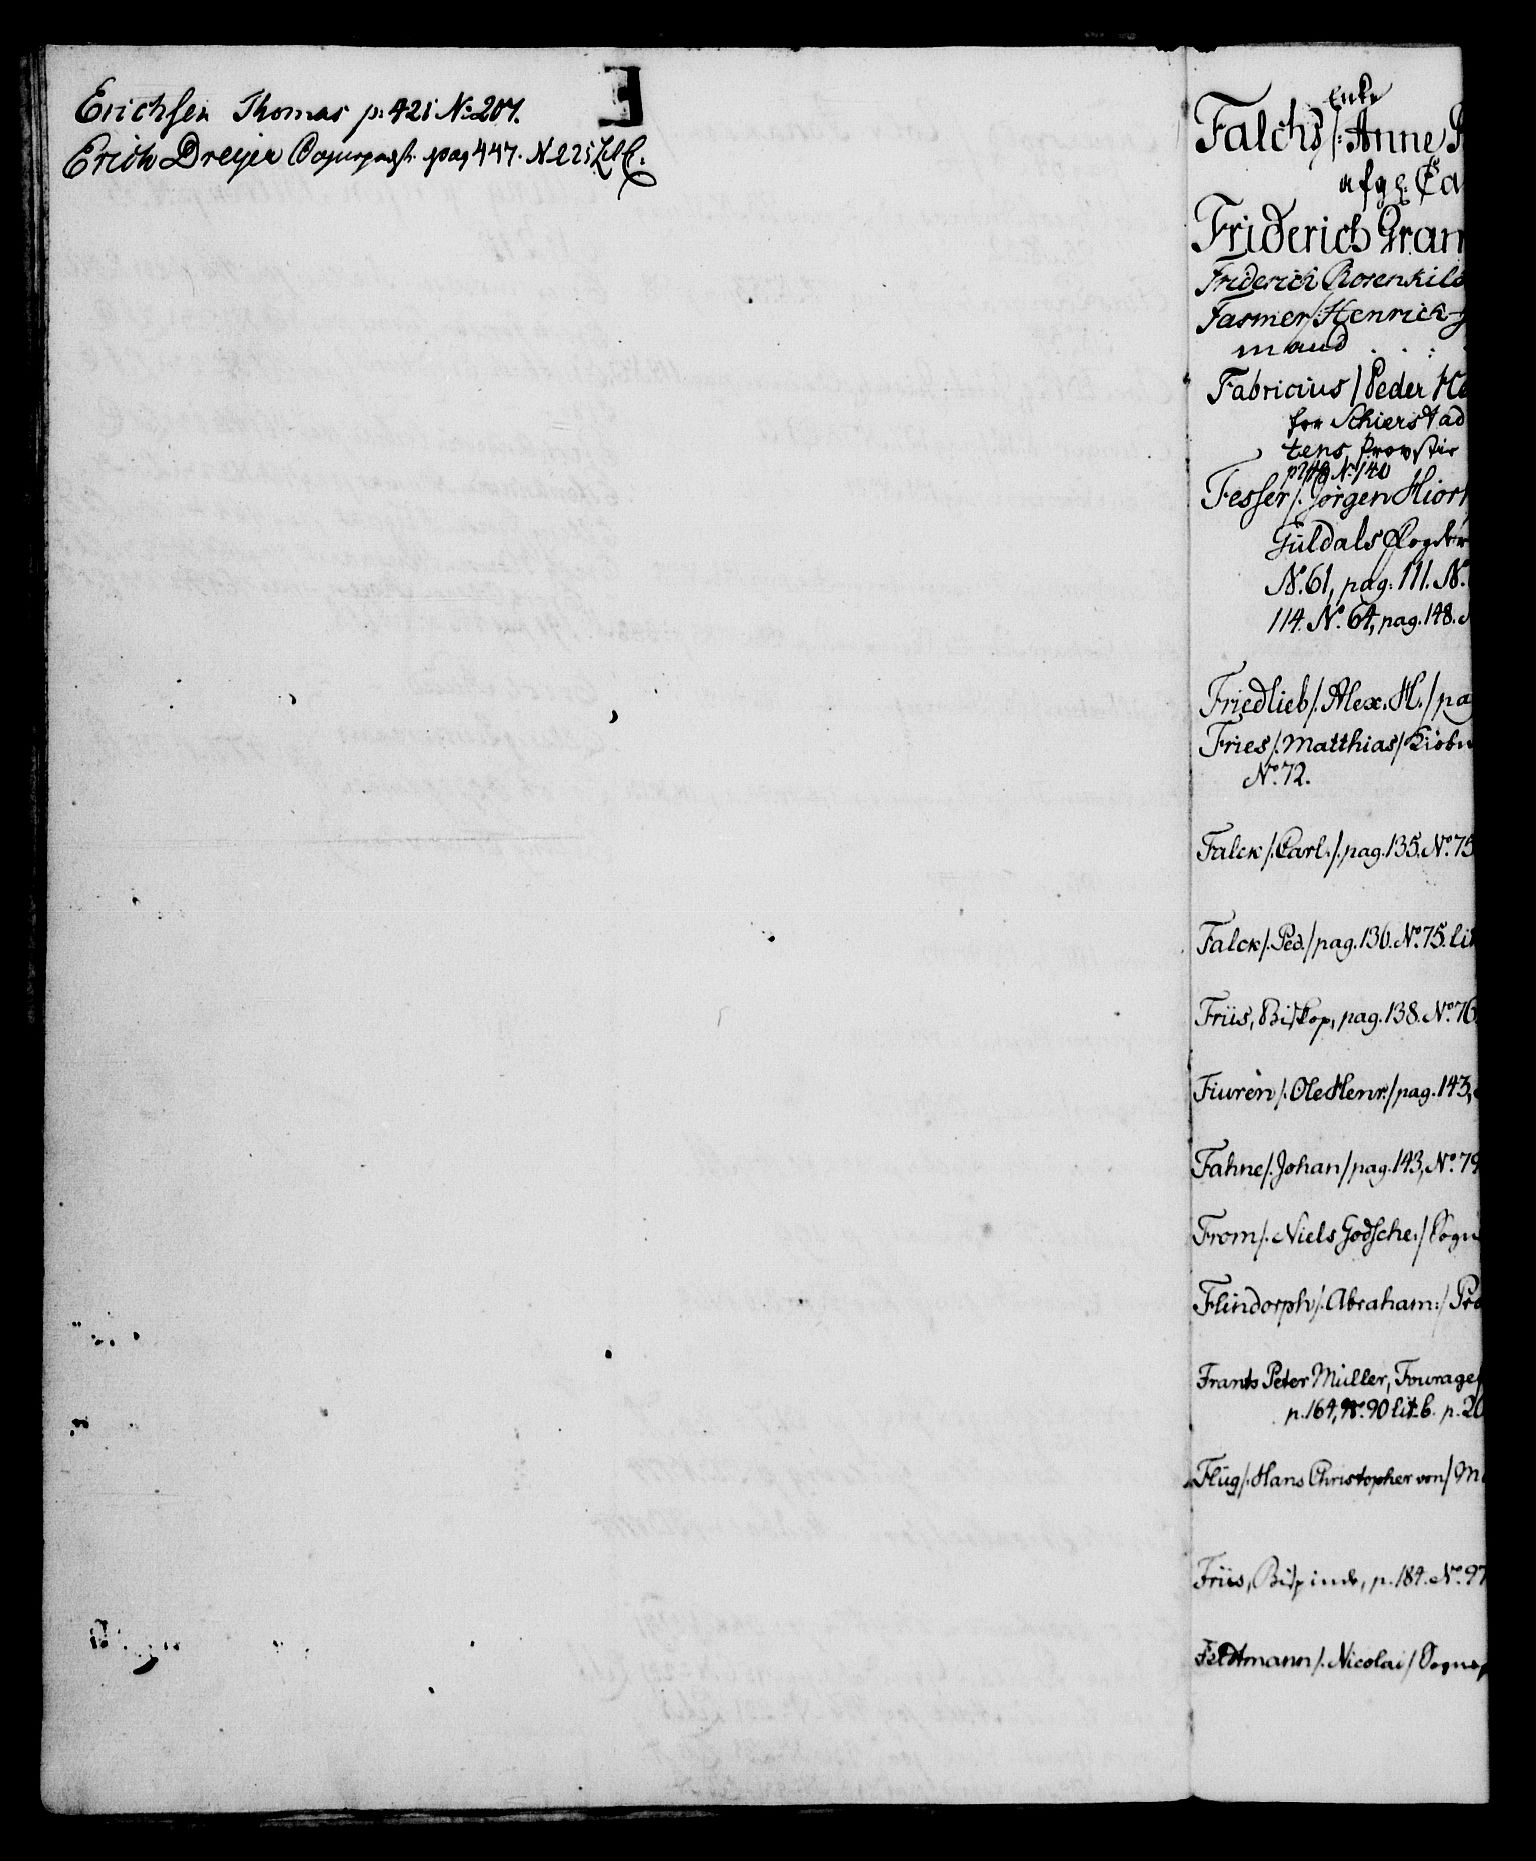 E
Erichsen Thomas p. 421 No. 207.
Erich Dreyer pag 447. N. 225 Lit C.
Enke
Falch /: Anne
afg: Ca
Friderich Gram
Friderich Rosenkild
Fasmer /: Henrick
mand . . :
Fabricius / Peder
for Schierstad
tens Provstie
p. 248 No. 140
Fesser /: Jørgen Hior
Guldals Fogderi
No. 61, pag: 111. No.
114. No. 64, pag. 148.
Friedlieb /: Alex. H. / pag
Fries /: Matthias / Kiøbm
No. 72.
Falck /: Carl. /. pag. 135. No. 75
Falck /. Ped. / pag. 136. No. 75. lit
Friis, Biskop, pag. 138. No. 76
Fiuren /. Ole Henr. / pag. 143,
Fahne /. Johan / pag. 143, No. 79
From /. Niels Godsche. / Sogn
Flindorph /. Abraham: / Pro
Frants Peter Müller, Fourage
p. 164, No. 90 lit. b. p. 20
Flüg /: Hans Christopher von / M
Friis, Bispinde, p. 184. No. 97
Feldtmann /. Nicolai / Sognep